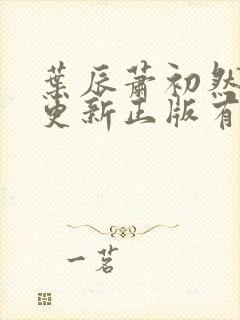 葉辰蕭初然
更新正版有
一茗